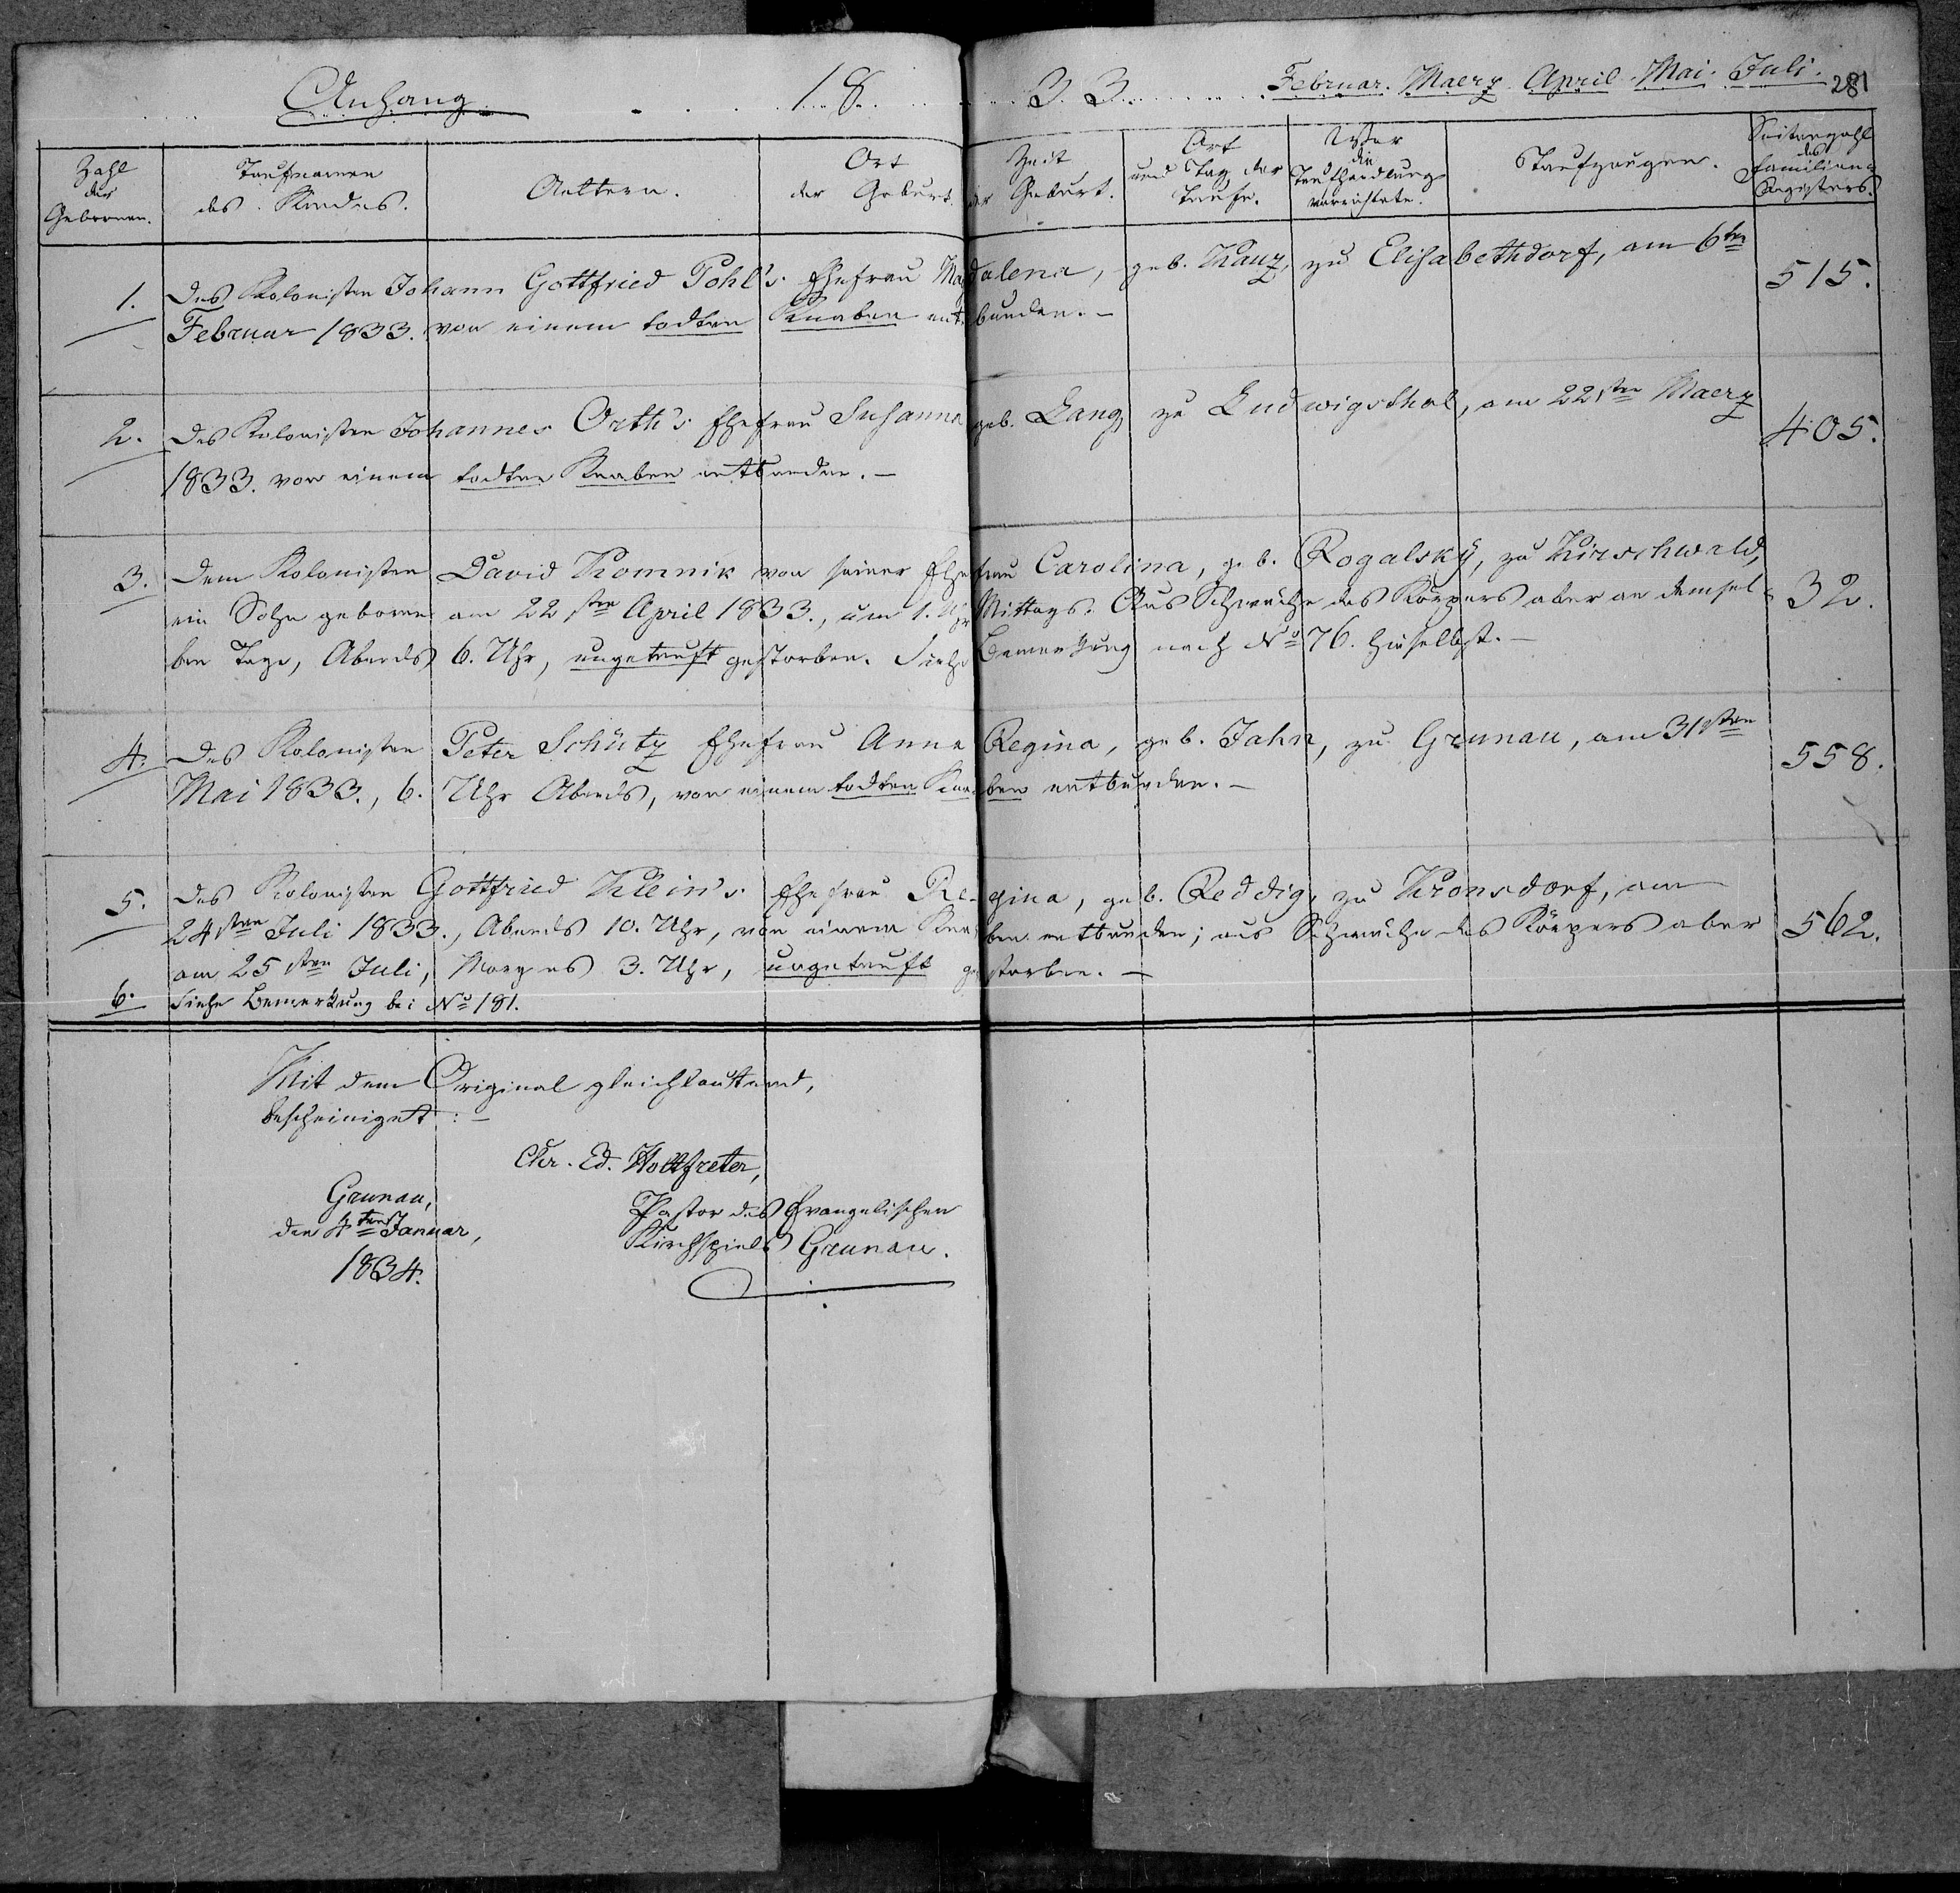 Anhang 1833. Februar. Maerz. April. Mai. Juli. 281
Zahl der Gebornen.
Taufnamen des Kindes.
Aeltern.
Ort der Geburt.
Zeit der Geburt.
Ort und Tag der Taufe.
Wer die Taufhandlung verrichtete.
Taufzeugen.
Seitenzahl des Familien-Registers.
1. Des Kolonisten Johann Gottfried Pohl's Ehefrau Magdalena, geb. Kauz, zu Elisabethdorf, am 6ten 515.
Februar 1833. von einem todten Knaben entbunden. –
2. Des Kolonisten Johannes Orth's Ehefrau Susanna geb. Lang, zu Ludwigsthal, am 22sten Maerz 405.
1833. von einem todten Knaben entbunden. –
3. Dem Kolonisten David Komnik von seiner Ehefrau Carolina, geb. Rogalsky, zu Kirschwald, 32.
ein Sohn geboren am 22sten April 1833., um 1. Uhr Mittags. Aus Schwäche des Körpers aber an demsel-
ben Tage, Abends 6. Uhr, ungetauft gestorben. Siehe Bemerkung nach No 76. hieselbst. –
4. Des Kolonisten Peter Schütz Ehefrau Anna Regina, geb. Jahn, zu Grunau, am 31sten 558.
Mai 1833., 6. Uhr Abends, von einem todten Knaben entbunden. –
5. Des Kolonisten Gottfried Klein's Ehefrau Regina, geb. Reddig, zu Kronsdorf, am
24sten Juli 1833., Abends 10. Uhr, von einem Knaben entbunden; aus Schwäche des Körpers aber 562.
am 25sten Juli, Morgens 3. Uhr, ungetauft gestorben. –
6. Siehe Bemerkung bei No 181.
Mit dem Original gleichlautend,
bescheiniget : –
Chr. Ed. Holtfreter,
Grunau, Pastor des Evangelischen
den 4ten Januar, Kirchspiels Grunau.
1834.